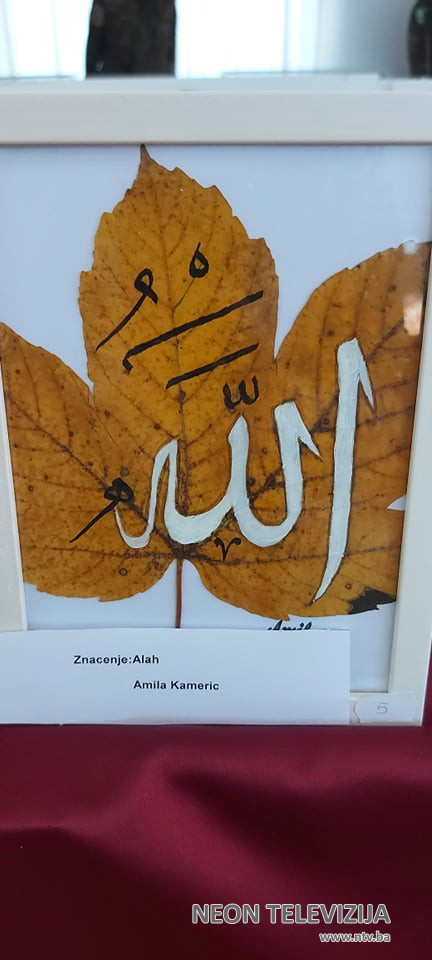 الله
Znacenje:Alah
Amila Kameric
5
NEON TELEVIZIJA
www.ntv.ba